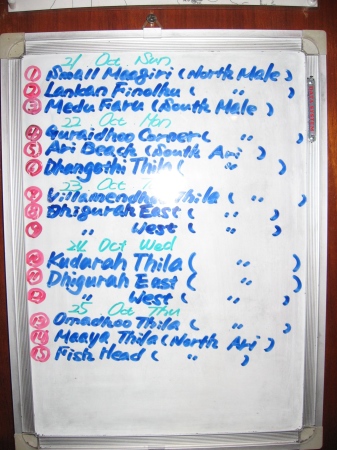 21 Oct Sun
1 Small Maagiri (North Male)
2 Lankan Finolhu ( " )
3 Medu Faru (South Male)
22 Oct Mon
4 Guraidhoo Corner ( " )
5 Ari Beach (South Ari)
6 Dhangethi Thila ( " )
23 Oct
7 Villamendhoo Thila ( " )
8 Dhigurah East ( " )
9 " West ( " )
24 Oct Wed
10 Kudarah Thila ( " )
11 Dhigurah East ( " )
12 " West ( " )
25 Oct Thu
13 Omadhoo Thila ( " )
14 Maaya Thila (North Ari)
15 Fish Head ( " )